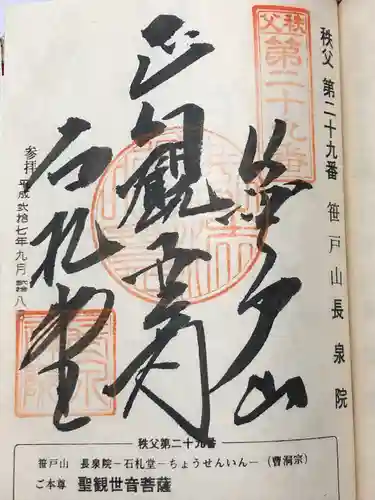 秩父 第二十九番 笹戸山長泉院
秩父
第二十九番
笹戸山
正観世音
石札堂
参拝 平成弐拾七年九月
秩父第二十九番
笹戸山 長泉院－石札堂－ちょうせんいん－（曹洞宗）
ご本尊 聖観世音菩薩